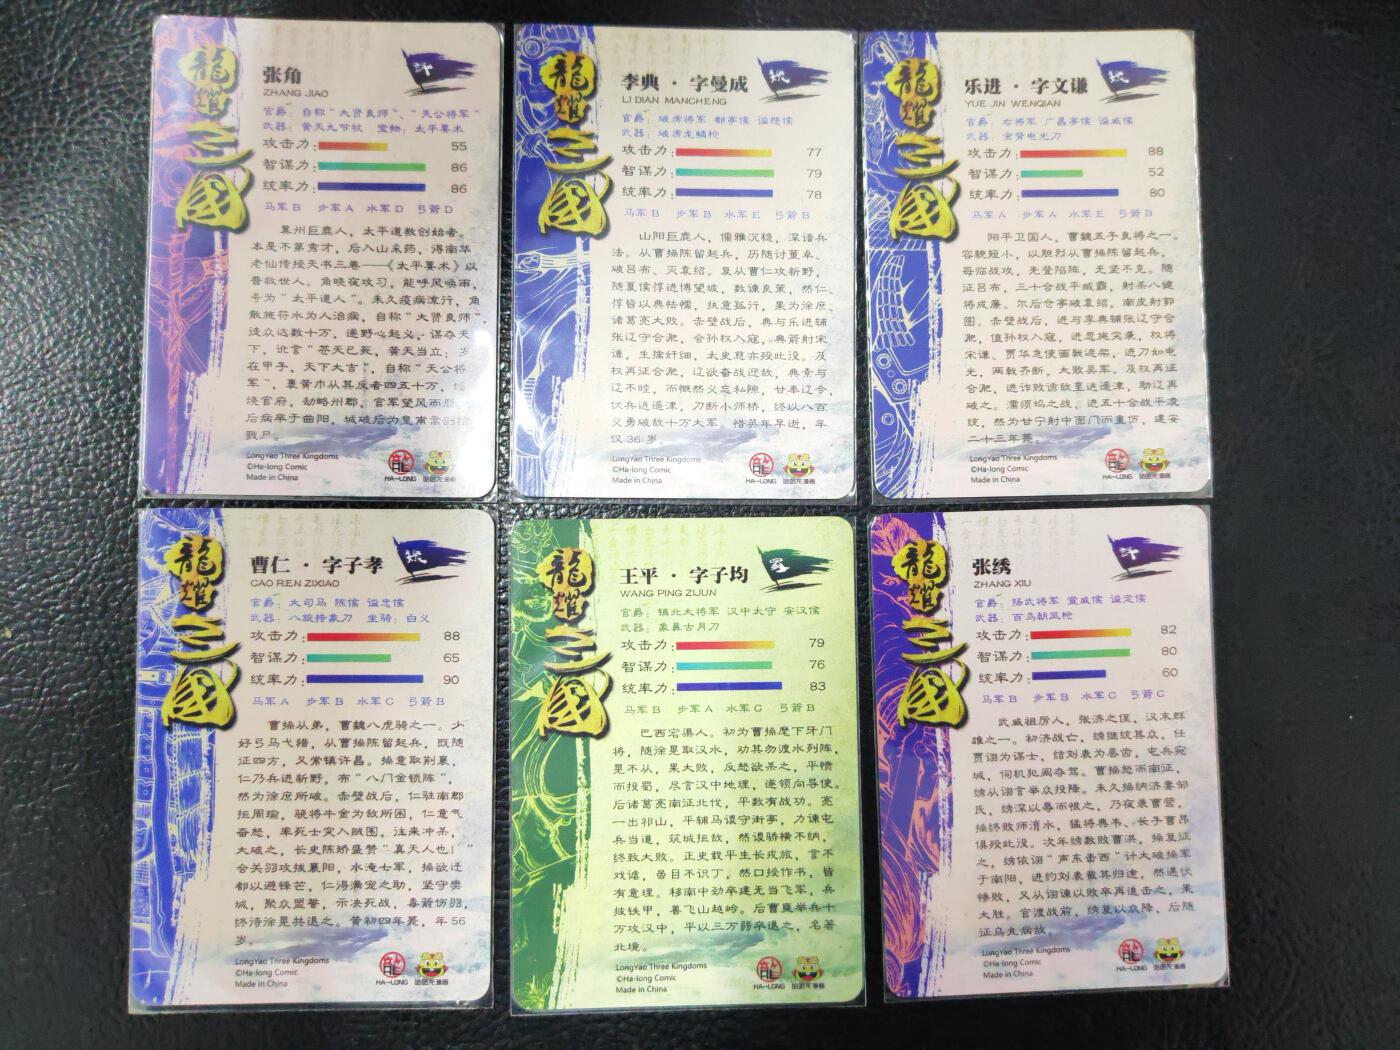 龍耀三國
张角
ZHANG JIAO
官爵：自称“大贤良师”、“天公将军”
武器：黄天九节杖 宝物：太平要术
攻击力： 55
智谋力： 86
统率力： 86
马军B 步军A 水军D 弓箭D
冀州巨鹿人，太平道教创始者。
本是不第秀才，后入山采药，得南华
老仙传授天书三卷——《太平要术》以
普救世人。角晓夜攻习，能呼风唤雨，
号为“太平道人”。未久疫病流行，角
散施符水为人治病，自称“大贤良师”，
徒众达数十万，遂野心起义，谋夺天
下，讹言“苍天已死，黄天当立；岁
在甲子，天下大吉”，自称“天公将
军”，裹黄巾从其反者四五十万，烧
烧官府，劫略州郡，官军望风而
后病卒于曲阳，城破后为皇甫嵩剖棺
戮尸。
LongYao Three Kingdoms
©Ha-long Comic
Made in China
HA-LONG 哈哈龙漫画
龍耀三國
李典·字曼成
LI DIAN MANCHENG
官爵：破虏将军 都亭侯 谥愍侯
武器：破虏龙鳞枪
攻击力： 77
智谋力： 79
统率力： 78
马军B 步军B 水军E 弓箭B
山阳巨鹿人，儒雅沉稳，深谙兵
法。从曹操陈留起兵，历随讨董卓、
破吕布、灭袁绍。复从曹仁攻新野，
随夏侯惇进博望城，数谏良策，然仁、
惇皆以典怯懦，执意孤行，果为徐庶、
诸葛亮大败。赤壁战后，典与乐进辅
张辽守合肥，会孙权入寇，典箭射宋
谦，生擒奸细，太史慈亦殁此役。及
权再征合肥，辽欲奋战迎敌，典素与
辽不睦，而慨然义忘私隙，甘奉辽令，
伏兵逍遥津，刀断小师桥，终以八百
义勇破敌十万大军。惜英年早逝，年
仅36岁。
LongYao Three Kingdoms
©Ha-long Comic
Made in China
HA-LONG 哈哈龙漫画
龍耀三國
乐进·字文谦
YUE JIN WENQIAN
官爵：右将军 广昌亭侯 谥威侯
武器：金背电光刀
攻击力： 88
智谋力： 52
统率力： 80
马军A 步军A 水军E 弓箭B
阳平卫国人，曹魏五子良将之一。
容貌短小，以胆烈从曹操陈留起兵，
每临战攻，先登陷阵，无坚不克。随
征吕布，三十合战平臧霸，射杀八健
将成廉。尔后仓亭破袁绍，南皮射郭
图。赤壁战后，进与李典辅张辽守合
肥，值孙权入寇，进恩施突袭，权将
宋谦、贾华急使画戟遮架，进刀如电
光，两戟齐断，大败吴军。及权再征
合肥，进诈败诱敌至逍遥津，助辽再
破之。濡须坞之战，进五十合战平凌
统，然为甘宁射中面门而重伤，建安
二十三年薨。
LongYao Three Kingdoms
©Ha-long Comic
Made in China
HA-LONG 哈哈龙漫画
龍耀三國
曹仁·字子孝
CAO REN ZIXIAO
官爵：大司马 陈侯 谥忠侯
武器：八旋持象刀 坐骑：白义
攻击力： 88
智谋力： 65
统率力： 90
马军A 步军B 水军C 弓箭B
曹操从弟，曹魏八虎骑之一。少
好弓马弋猎，从曹操陈留起兵，既随
征四方，又常镇许昌。操意取荆襄，
仁乃兵进新野，布“八门金锁阵”，
然为徐庶所破。赤壁战后，仁驻南郡
拒周瑜，骁将牛金为敌所困，仁意气
奋怒，率死士突入贼围，往来冲杀，
大破之，长史陈矫盛赞“真天人也！”
会关羽攻拔襄阳，水淹七军，操欲迁
都以避锋芒，仁得满宠之助，坚守樊
城，聚众盟誓，示决死战，毒箭伤羽，
终待徐晃共退之。黄初四年薨，年56
岁。
LongYao Three Kingdoms
©Ha-long Comic
Made in China
HA-LONG 哈哈龙漫画
龍耀三國
王平·字子均
WANG PING ZIJUN
官爵：镇北大将军 汉中太守 安汉侯
武器：象鼻古月刀
攻击力： 79
智谋力： 76
统率力： 83
马军B 步军A 水军C 弓箭B
巴西宕渠人。初为曹操麾下牙门
将，随徐晃取汉水，劝其勿渡水列阵，
晃不从，果大败，反怒欲杀之，平愤
而投蜀，尽言汉中地理，遂领向导使。
后诸葛亮南征北伐，平数有战功。亮
一出祁山，平辅马谡守街亭，力谏屯
兵当道，筑城拒敌，然谡骄横不纳，
终致大败。正史载平生长戎旅，言不
戏谑，虽目不识丁，然口授作书，皆
有意理。移南中劲卒建无当飞军，兵
披铁甲，善飞山越岭。后曹爽举兵十
万攻汉中，平以三万弱卒退之，名著
北境。
LongYao Three Kingdoms
©Ha-long Comic
Made in China
HA-LONG 哈哈龙漫画
龍耀三國
张绣
ZHANG XIU
官爵：扬武将军 宣威侯 谥定侯
武器：百鸟朝凤枪
攻击力： 82
智谋力： 80
统率力： 60
马军B 步军B 水军C 弓箭C
武威祖厉人，张济之侄，汉末群
雄之一。初济战亡，绣继统其众，任
贾诩为谋士，结刘表为唇齿，屯兵宛
城，伺机犯阙夺驾。曹操怒而南征，
绣从诩言举众投降。未久操纳济妻邹
氏，绣深以辱而恨之，乃夜袭曹营，
操终败师淯水，猛将典韦、长子曹昂
俱殁此役。次年绣数败曹洪，操复征
之，绣依诩“声东击西”计大破操军
于南阳，进约刘表截其归途，然遇伏
惨败，又从诩谏以败卒再追击之，果
大胜。官渡战前，绣复以众降，后随
征乌丸病故。
LongYao Three Kingdoms
©Ha-long Comic
Made in China
HA-LONG 哈哈龙漫画